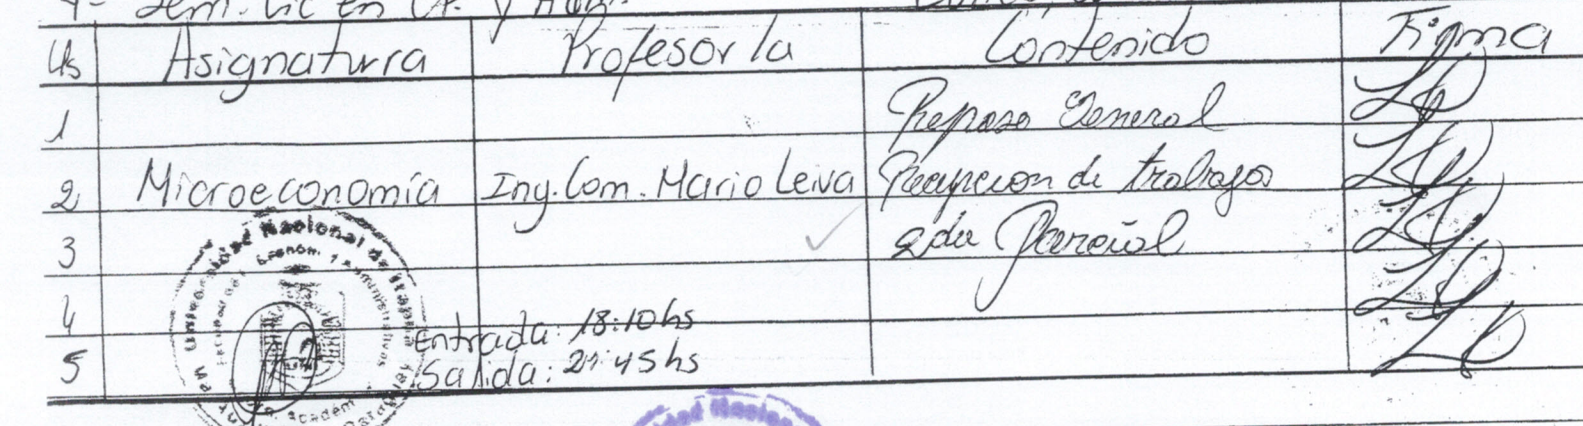 Hs Asignatura Profesor/a Contenido Firma
1 Repaso General
2 Microeconomía Ing. Com. Mario Leiva Recepcion de trabajos
3 2da Parcial
4 Entrada: 18:10 hs
5 Salida: 21:45 hs
Universidad Nacional de Itapúa